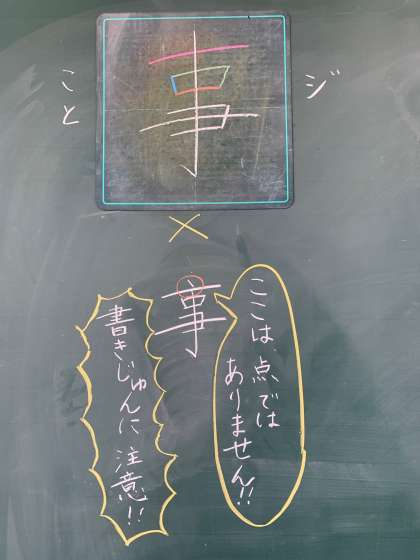 ジ
事
こと
×
事
ここは、点では
ありません!!
書きじゅんに注意!!